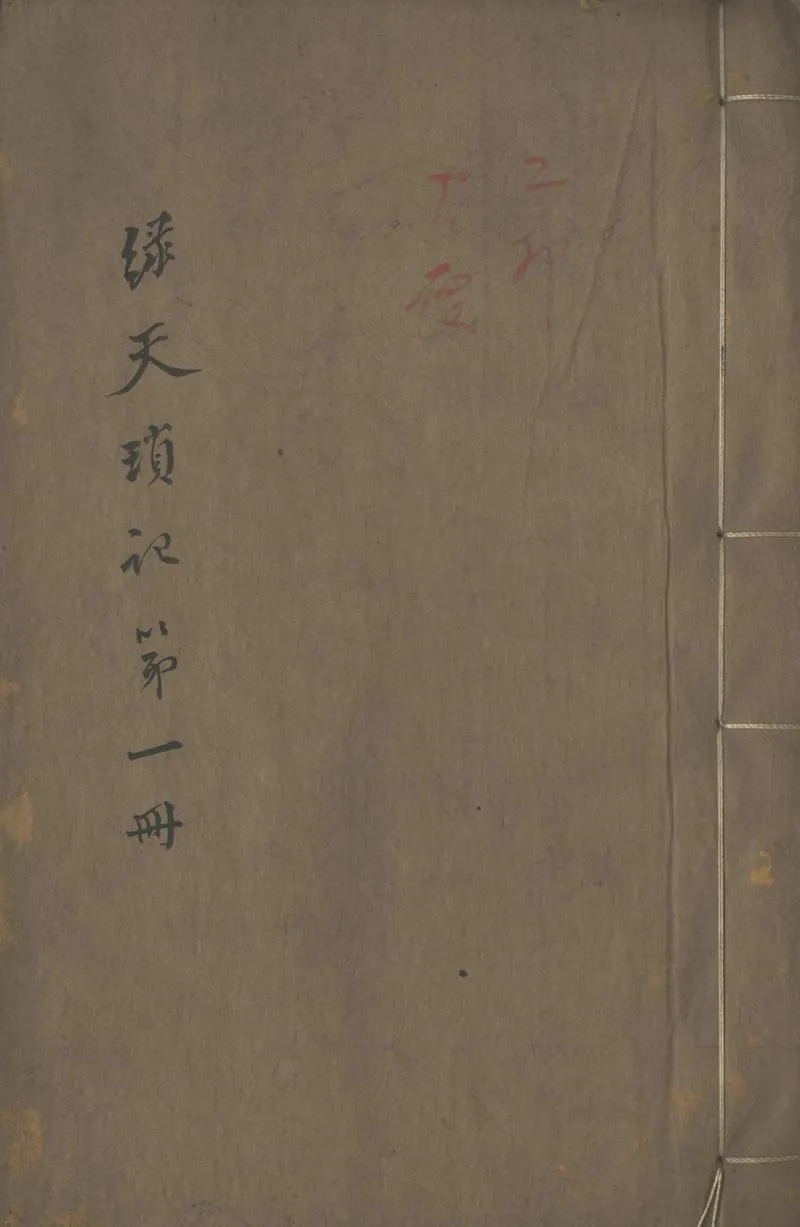 绿天瑣記第一冊